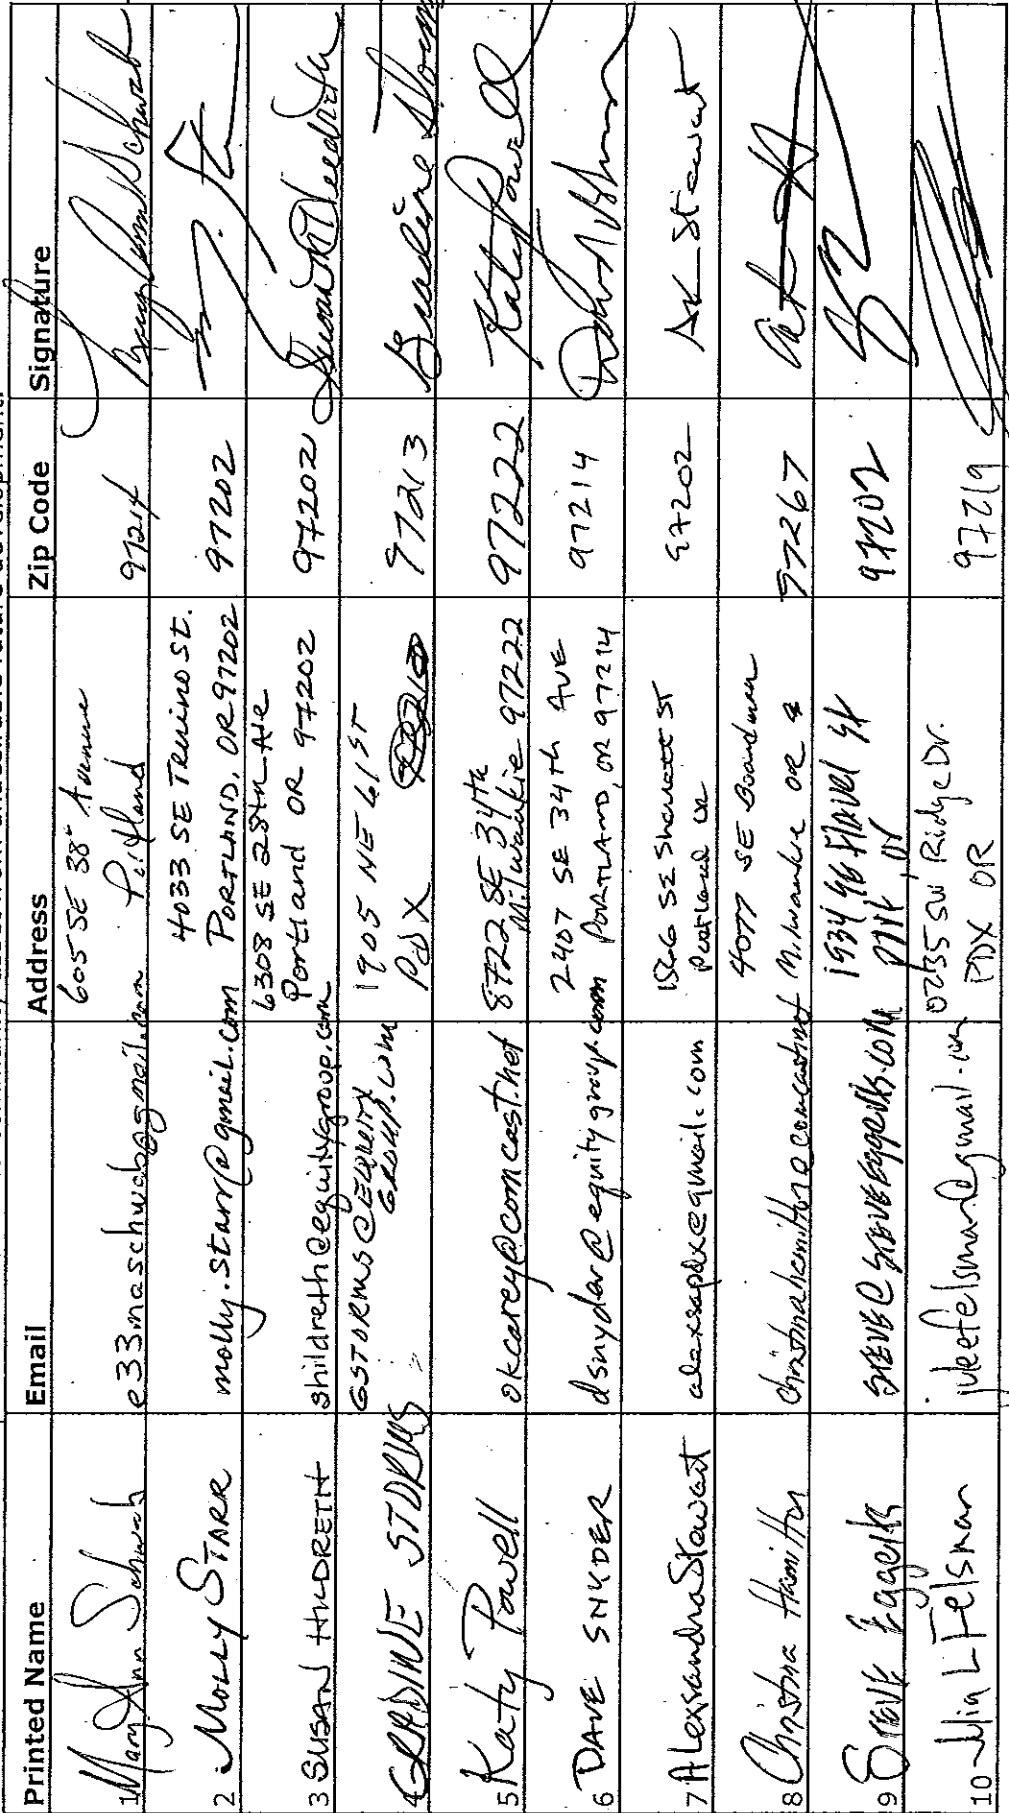 Printed Name Email Address Zip Code Signature
1 Mary Ann Schwab e33maschwab@gmail.com 605 SE 38th Avenue Portland 97214 Mary Ann Schwab
2 Molly Starr molly.starr@gmail.com 4033 SE Trenino St. Portland, OR 97202 97202
3 Susan Hildreth shildreth@equitygroup.com 6308 SE 28th Ave Portland OR 97202 97202 Susan Hildreth
4 Gradine Storms GSTORMS@EQUITY GROUP.COM 1905 NE 61st PDX 97213 Gradine Storms
5 Katy Powell okcarey@comcast.net 8722 SE 34th Milwaukie 97222 97222 Katy Powell
6 Dave Snyder dsnyder@equitygroup.com 2407 SE 34th Ave Portland, OR 97214 97214
7 Alexsandra Stewart alexsapdx@gmail.com SE Portland OR 97202 AK Stewart
8 Christina Hamilton 4077 SE Boardman Milwaukie OR 97267
9 Steve Eggerts steve@steveeggerts.com 1934 SE Flavel St 97202
10 Julia L Felsman 0735 SW Ridge Dr. PDX OR 97219